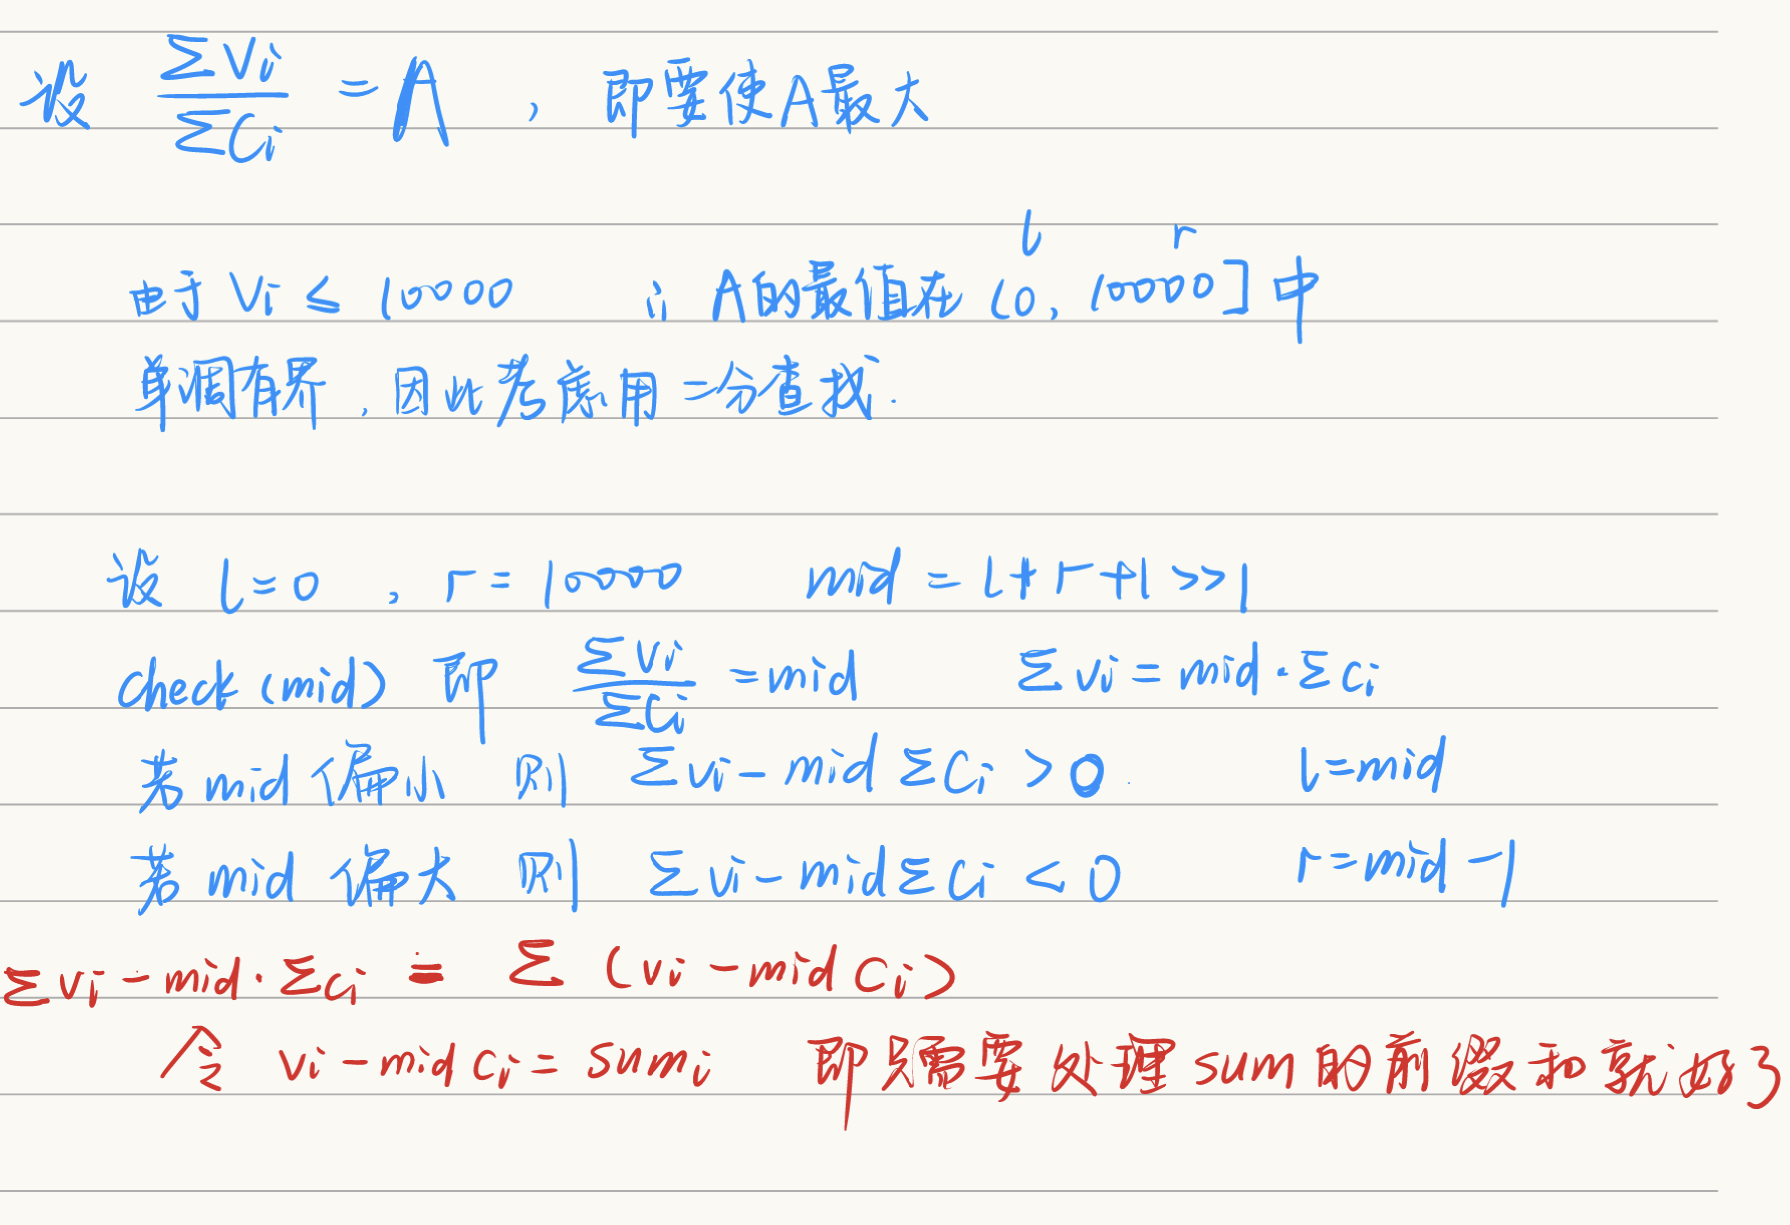 设 ΣVi/ΣCi = A , 即要使A最大
l r
由于 Vi ≤ 10000 ∴ A的最值在 (0, 10000] 中
单调有界,因此考虑用二分查找.
设 l=0 , r=10000 mid = l+r+1>>1
check(mid) 即 ΣVi/ΣCi =mid Σvi=mid·Σci
若mid偏小 则 Σvi-midΣCi>0. l=mid
若mid偏大 则 Σvi-midΣCi<0 r=mid-1
Σvi-mid·Σci = Σ(vi-midCi)
令 vi-midci=sumi 即只需要处理sum的前缀和就好了